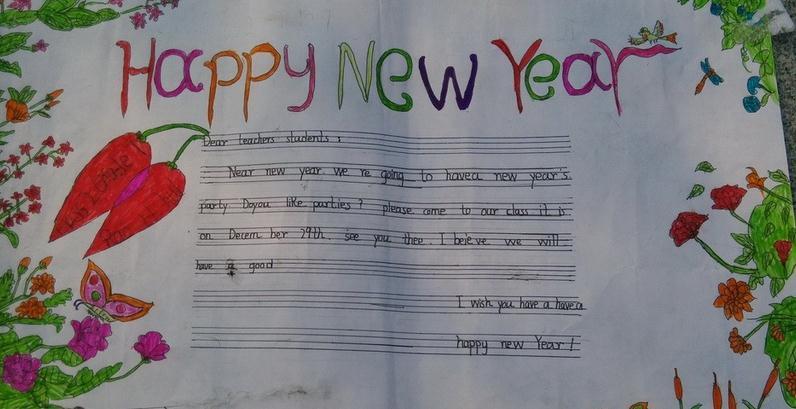 Happy New Year
Dear teachers students:
Near new year. we re going to havea new year's
party Doyou like parties? please come to our class it is
on Decem ber 29th. see you thee. I beieve we will
have a good
I wish you have a have a
happy new Year!